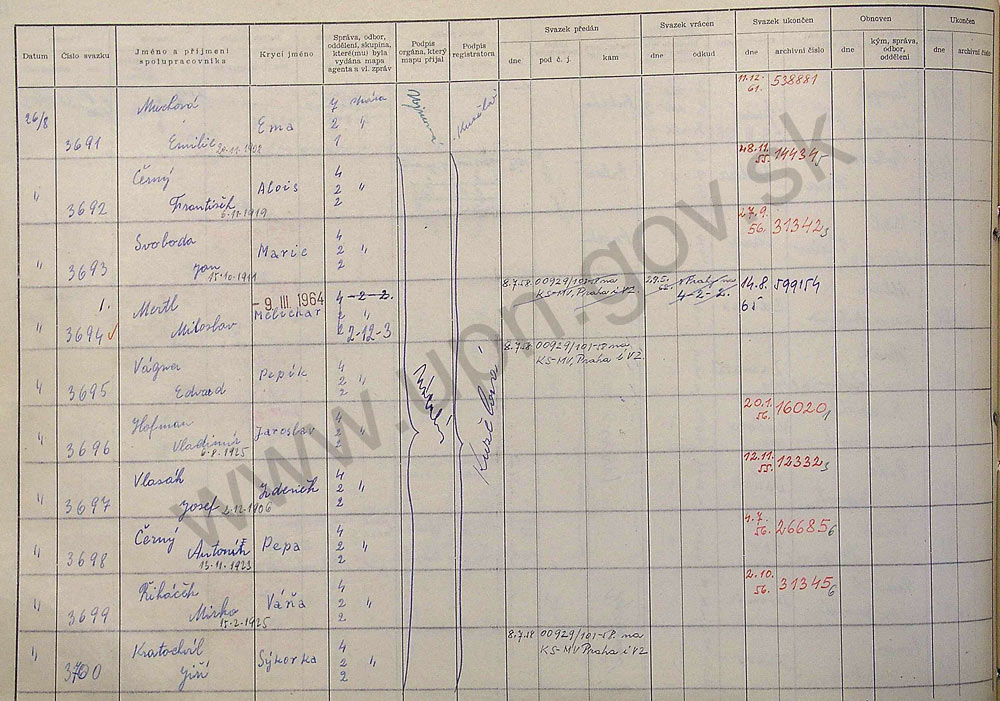 Datum
Číslo svazku
Jméno a příjmení
spolupracovníka
Krycí jméno
Správa, odbor,
oddělení, skupina,
které(mu) byla
vydána mapa
agenta a vl. zpráv
Podpis
orgána, který
mapu přijal
Podpis
registratora
Svazek předán
dne
pod č. j.
kam
Svazek vrácen
dne
odkud
Svazek ukončen
dne
archivní číslo
Obnoven
dne
kým, správa,
odbor,
oddělení
Ukončen
dne
archivní číslo
26/8
3691
Muchová
Emilie 20.11.1902
Ema
7 správa
2 "
1
11.12. 538881
61.
"
3692
Černý
František
6.11.1919
Alois
4
2 "
2
28.11. 14434 5
55.
"
3693
Svoboda
Jan 15.10.1911
Marie
4
2 "
2
27.9. 31342 3
56.
1.
"
3694 ✓
Mertl
Miloslav
- 9. III. 1964
Melichar
4-2-2.
2 "
2 2-12-3
8.7.58 00929/101-58 na
KS-MV, Praha i VZ.
4-2-2.
14.8. 599154
65
"
3695
Vágner
Edvard
Pepík
4
2 "
2
8.7.58 00929/101-58 na
KS-MV, Praha i VZ.
"
3696
Hofman
Vladimír
6.8.1925
Jaroslav
4
2 "
2
20.1. 16020 1
56.
"
3697
Vlasák
Josef 2.12.1906
Zdeněk
4
2 "
2
12.11. 12332 3
55.
"
3698
Černý
Antonín
13.11.1923
Pepa
4
2 "
2
4.7. 26685 6
56.
"
3699
Mirko
15.2.1925
Váňa
4
2 "
2
2.10. 31345 6
56.
"
3700
Kratochvíl
Jiří
Sýkorka
4
2 "
2
8.7.58 00929/101-58 na
KS-MV Praha i VZ
www.upn.gov.sk